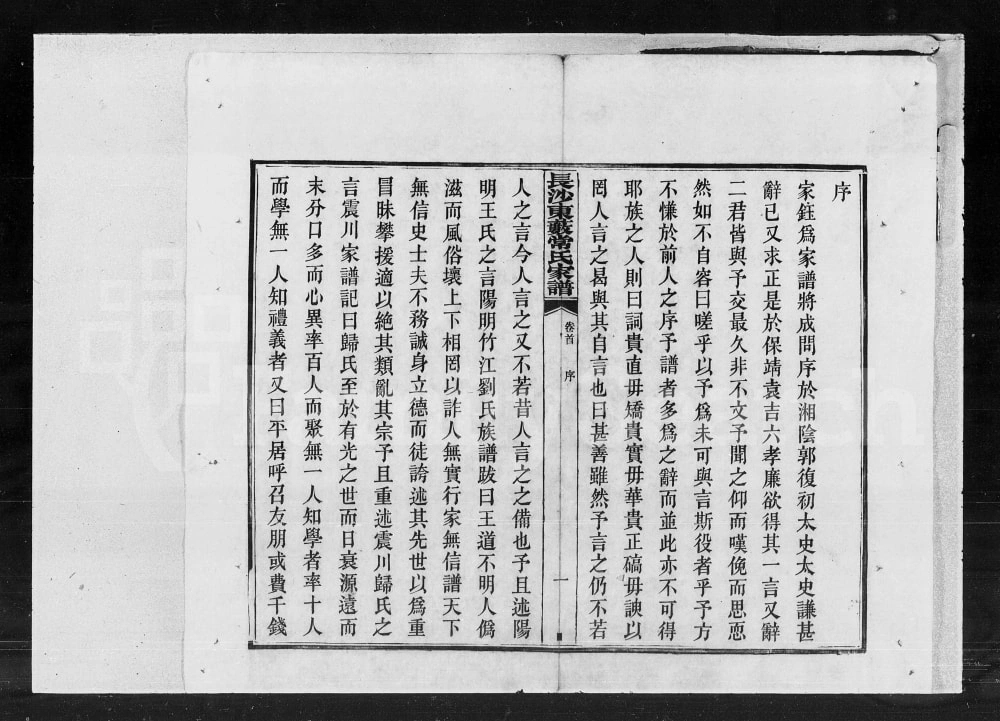 序
家鈺爲家譜將成問序於湘陰郭復初太史太史謙甚
辭已又求正是於保靖袁吉六孝廉欲得其一言又辭
二君皆與予交最久非不文予聞之仰而嘆俛而思恧
然如不自容曰嗟乎以予爲未可與言斯役者乎予方
不慊於前人之序予譜者多爲之辭而並此亦不可得
耶族之人則曰詞貴直毋矯貴實毋華貴正碻毋諛以
罔人言之曷與其自言也曰甚善雖然予言之仍不若
長沙東蕺常氏家譜
卷首
序
一
人之言今人言之又不若昔人言之之備也予且述陽
明王氏之言陽明竹江劉氏族譜跋曰王道不明人僞
滋而風俗壞上下相罔以詐人無實行家無信譜天下
無信史士夫不務誠身立德而徒誇述其先世以爲重
冒昧攀援適以絶其類亂其宗予且重述震川歸氏之
言震川家譜記曰歸氏至於有光之世而日衰源遠而
末分口多而心異率百人而聚無一人知學者率十人
而學無一人知禮義者又曰平居呼召友朋或費千錢